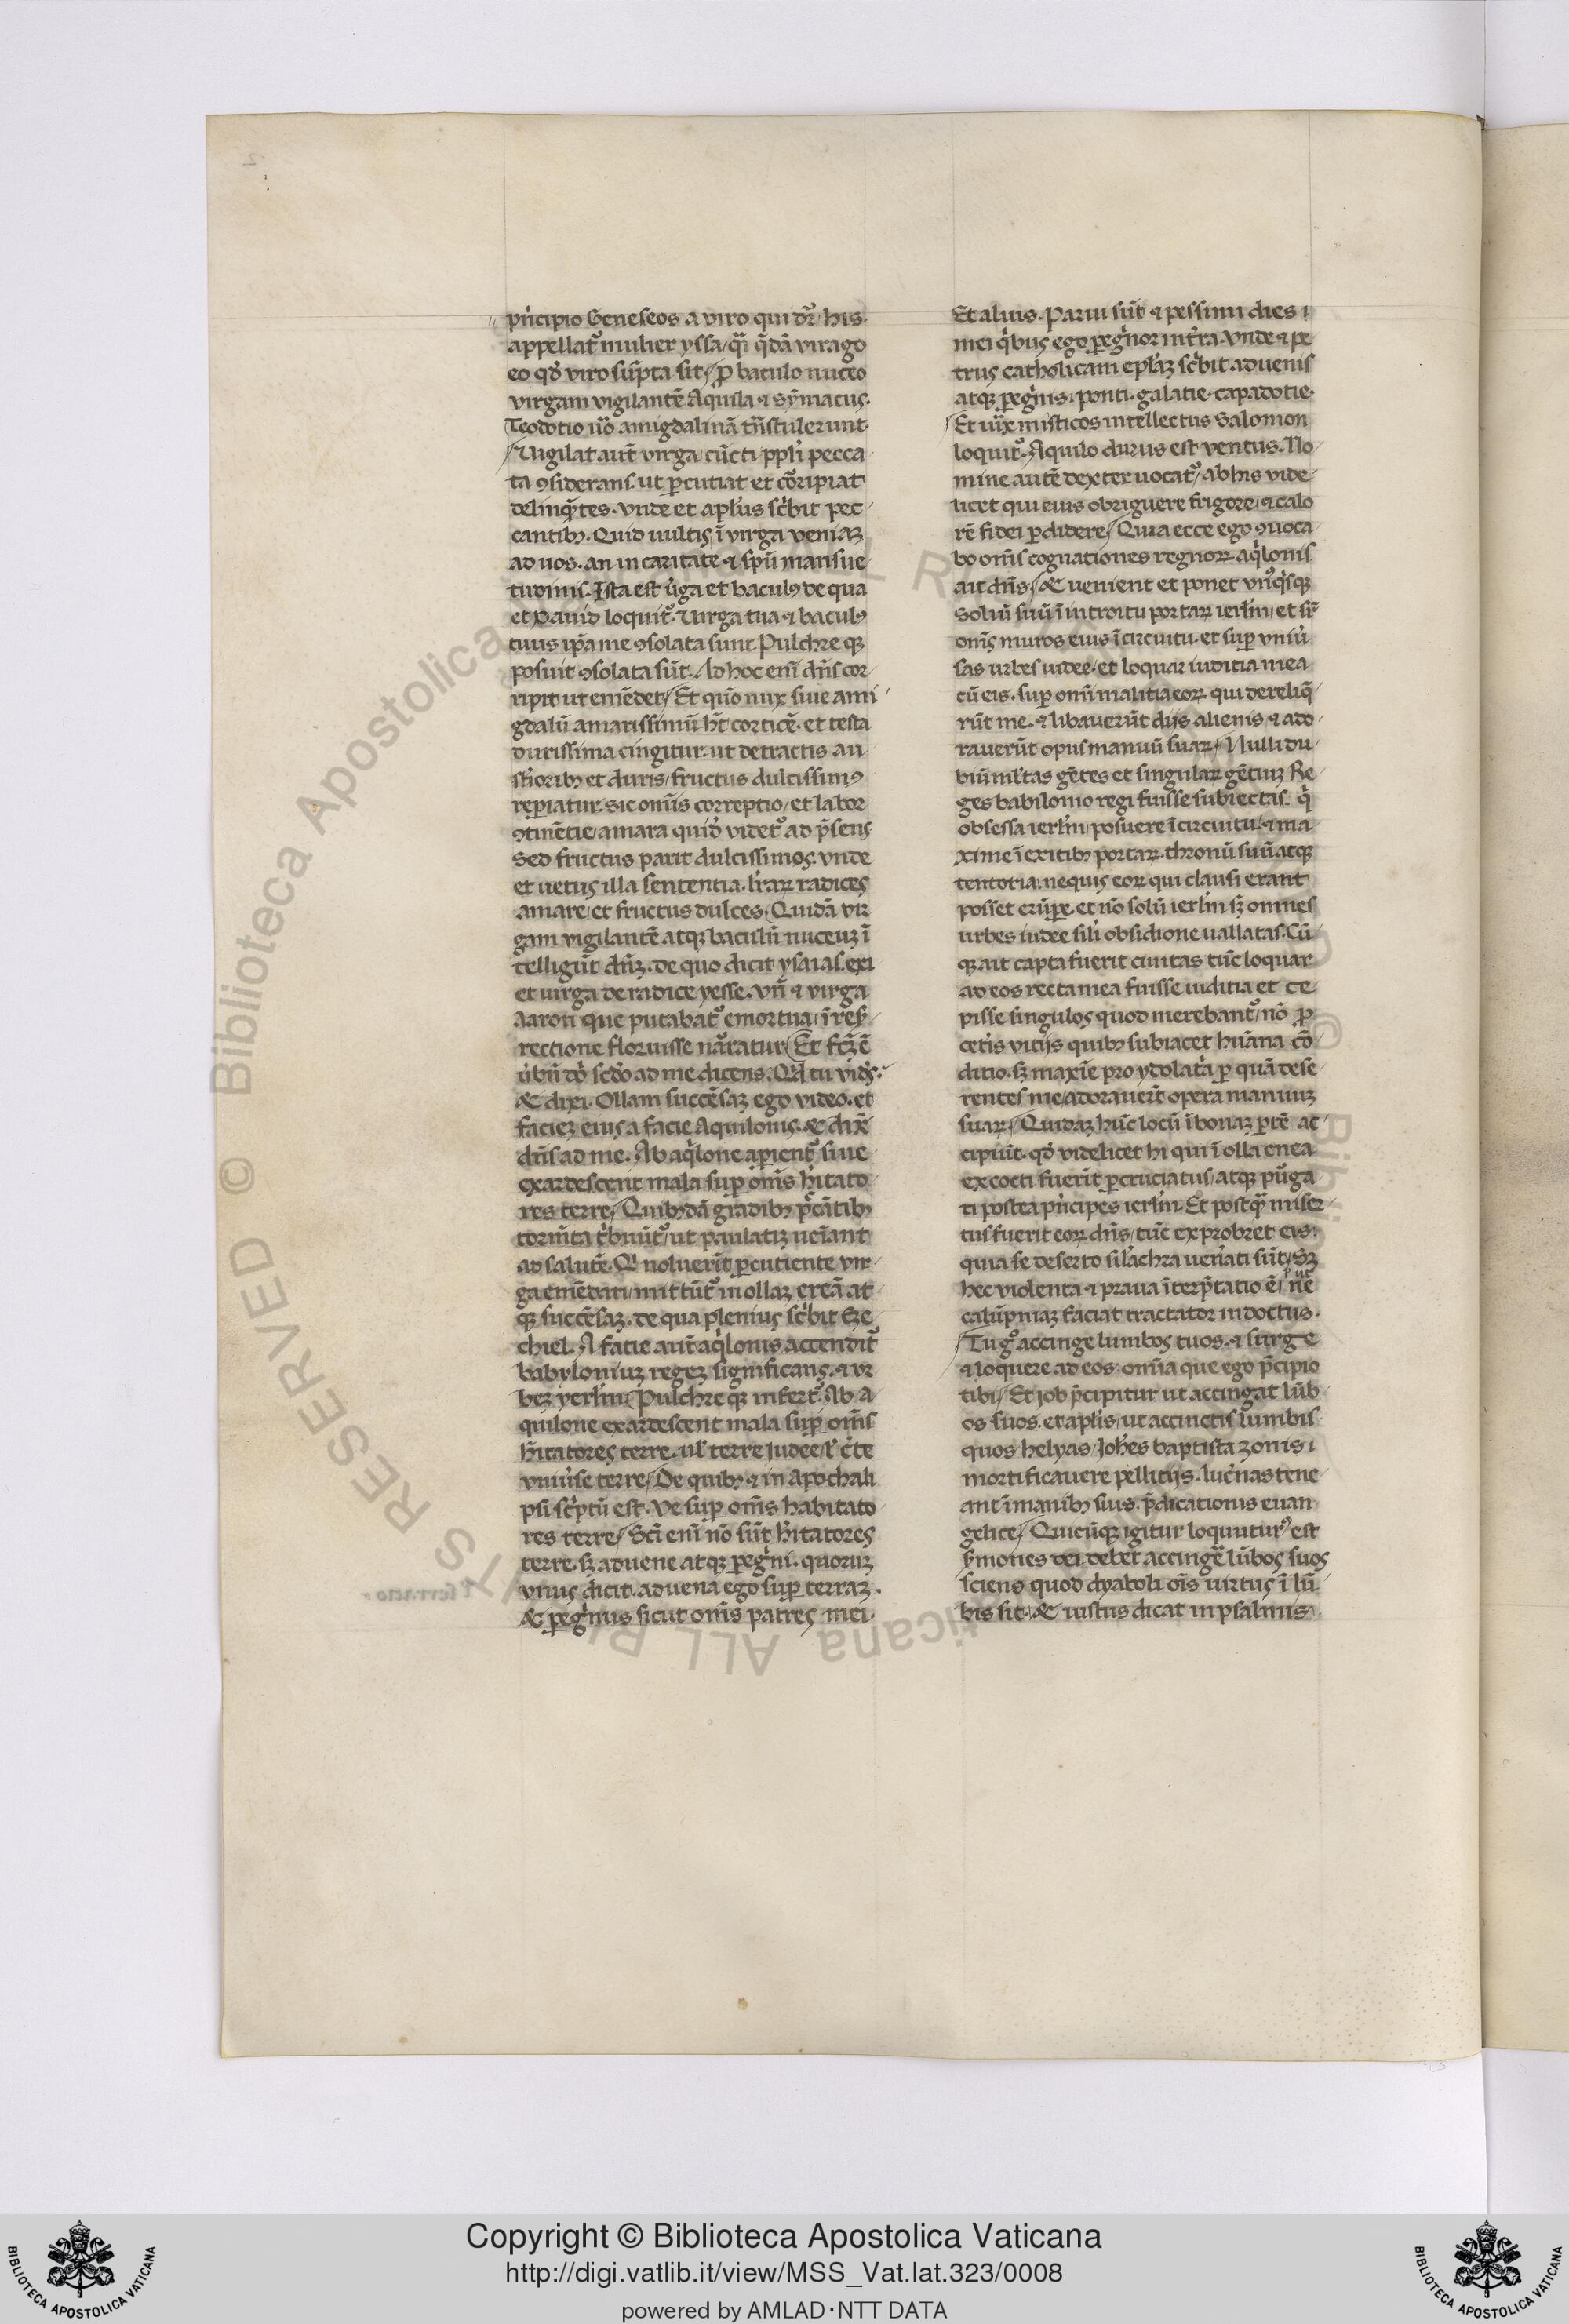 pͥncipio Geneseos a viro qui dr̃ his
appellatᷣ mulier yssa / qᷓi q̃dã virago
eo qd̓ viro sũpta sit / ꝓ baculo nuceo
virgam vigilantẽ Aquila ⁊ sẏmacus.
Teodotio ũo amigdalinã tñstulerunt.
Vigilat aut̃ virga / cũcti ppl̓i pecca
ta ꝯsiderans. ut ꝑcutiat et cõripiat
delinq̃tes. vnde et apl̓us scͥbit pec
cantibꝫ. Quid uultis ĩ virga veniaꝫ
ad uos. an in caritate ⁊ spũ mansue
tudinis. Ista est ũga et baculꝰ de qua
et Dauid loquitᷣ. Virga tua ⁊ baculꝰ
tuus ip̃a me ꝯsolata sunt. Pulchre qꝫ
posuit ꝯsolata sũt. Ad hoc eni dñs cor
ripit ut emẽdet / Et quõ nux siue ami
gdalũ amarissimũ hꝫ corticẽ. et testa
durissima cingitur. ut detractis au
st̓ioribꝫ et duris / fructus dulcissimꝰ
repiatur. sic omĩs correptio / et labor
ꝯtinẽtie / amara quid̓ videtᷣ ad p̃sens
Sed fructus parit dulcissimos. vnde
et uetus illa sententia. l̓raꝝ radices
amare / et fructus dulces. Quidã vir
gam vigilantẽ atqꝫ baculũ nuceuꝫ ĩ
telligũt dñꝫ. de quo dicit ysaias. exi
et uirga de radice yesse. vñ ⁊ virga
Aaron que putabatᷣ emortua / ĩ resᷣ
rectione floruisse narratur. Et fcꝫ ẽ
ũbũ dñ̓ scd̓o ad me dicens. Qd̓ tu vid̓s.
⁊ dixi. Ollam succẽsaꝫ ego video. et
facieꝫ eius a facie Aquilonis. ⁊ dix̃
dñs ad me. Ab aqͥlone apientᷣ siue
exardescent mala sup om̃s hĩtato
res terre / Quibꝫdã gradibꝫ p̃cãtibꝫ
torm̃ta tͥbuũtᷣ / ut paulatiꝫ ueĩant
ad salutẽ. Qͥ noluerĩt ꝑcutiente vir
ga emẽdari / mittũtᷣ in ollaꝫ ereã at
qꝫ succẽsaꝫ. de qua plenius scͥbit Eze
chiel. A facie aut̃ aqͥlonis accenditᷣ
babyloniuꝫ regeꝫ significans. ⁊ ur
beꝫ yerl̓m / Pulchre qꝫ infertᷣ. Ab a
quilone exardescent mala sup om̃s
hĩtatores terre. ul̓ terre Judee / l̓ c̓te
vniũse terre / De quibꝫ ⁊ in Apochali
psi scͥptũ est. Ve sup om̃s habitato
res terre / Sci eni nõ sũt hĩtatores
terre. sꝫ aduene atqꝫ ꝑegͥni. quoruꝫ
vnus dicit. aduena ego sup terraꝫ.
⁊ ꝑegͥnus sicut om̃s patres mei.
Et aluis. Parui sũt ⁊ pessimi dies
mei qͥbus ego ꝑegͥnor in t̓ra. vnde ⁊ pe
trus catholicam epl̓aꝫ scͥbit. aduenis
atqꝫ ꝑegͥnis. ponti. galatie. capadotie.
Et iuꝫ misticos intellectus Salomon
loquitᷣ. Aquilo durus est ventus. No
mine autẽ dexter uocatᷣ / ab his vide
licet qui eius obriguere frigore / ⁊ calo
rẽ fidei ꝑdidere / Quia ecce ego ꝯuoca
bo om̃s cognationes regnoꝝ aqͥlonis
ait dñs / ⁊ uenient et ponet vnᷣqͥsqꝫ
Soliũ suũ ĩ introitu portaꝝ ierl̓m / et sᷣ
om̃s muros eius ĩ circuitu. et sup vniũ
sas urbes iudee. et loquar iuditia mea
cũ eis. sup om̃i malitia eoꝝ qui dereliq̃
rũt me. ⁊ libauerũt diis alienis ⁊ ado
rauerũt opus manuũ suaꝝ / Nulli du
biũ ml̓tas gẽtes et singulaꝝ gẽtiuꝫ Re
ges babilonio regi fuisse subiectas. qͥ
obsessa ierl̓m / posuere ĩ circuitu. ⁊ ma
xime ĩ exitibꝫ portaꝝ. thronũ suũ atqꝫ
tentoria. nequis eoꝝ qui clausi erant
posset erũpe. et nõ solũ ierl̓m sꝫ omnes
urbes iudee sil̓i obsidione uallatas. Cũ
qꝫ ait capta fuerit ciuitas tũc loquar
ad eos recta mea fuisse iuditia et ce
pisse singulos quod merebantᷣ / nõ ꝓ
cet̓is vitijs quibꝫ subiacet huãna cõ
ditio. sꝫ maxĩe pro ydolat̓a ꝑ quã dese
rentes me / adorauerĩt opera manuuꝫ
suaꝝ / Quidaꝫ hũc locũ ĩ bonaꝫ ꝑtẽ ac
cipiũt. qd̓ videlicet hi qui ĩ olla enea
excocti fuerĩt ꝑ cruciatus / atqꝫ pᷣga
ti postea pͥncipes ierl̓m. Et postqᷓ miser
tus fuerit eoꝝ dñs / tũc exprobret eis.
quia se deserto sil̓achra uen̓ati sũt. Sꝫ
hec violenta ⁊ praua ĩterp̃tatio ẽ / ne
calũpniaꝫ faciat tractator indoctus.
Tu gͦ accinge lumbos tuos. ⁊ surge
⁊ loquere ad eos. om̃ia que ego p̃cipio
tibi / Et Job p̃cipitur ut accingat lũb
os suos. et apl̓is / ut accinctis lumbis
quos helyas / Joh̓es baptista zonis
mortificauere pellitijs. luc̓nas tene
ant ĩ manibꝫ suis. p̃dicationis euan
gelice / Quicũqꝫ igitur loquuturꝰ est
ẜmones dei. debet accinge lũbos suos
sciens quod dyaboli oĩs uirtus ĩ lũ
bis sit. ⁊ iustus dicat in psalmis
Copyright © Biblioteca Apostolica Vaticana
http://digi.vatlib.it/view/MSS_Vat.lat.323/0008
powered by AMLAD·NTT DATA
BIBLIOTECA APOSTOLICA VATICANA
BIBLIOTECA APOSTOLICA VATICANA